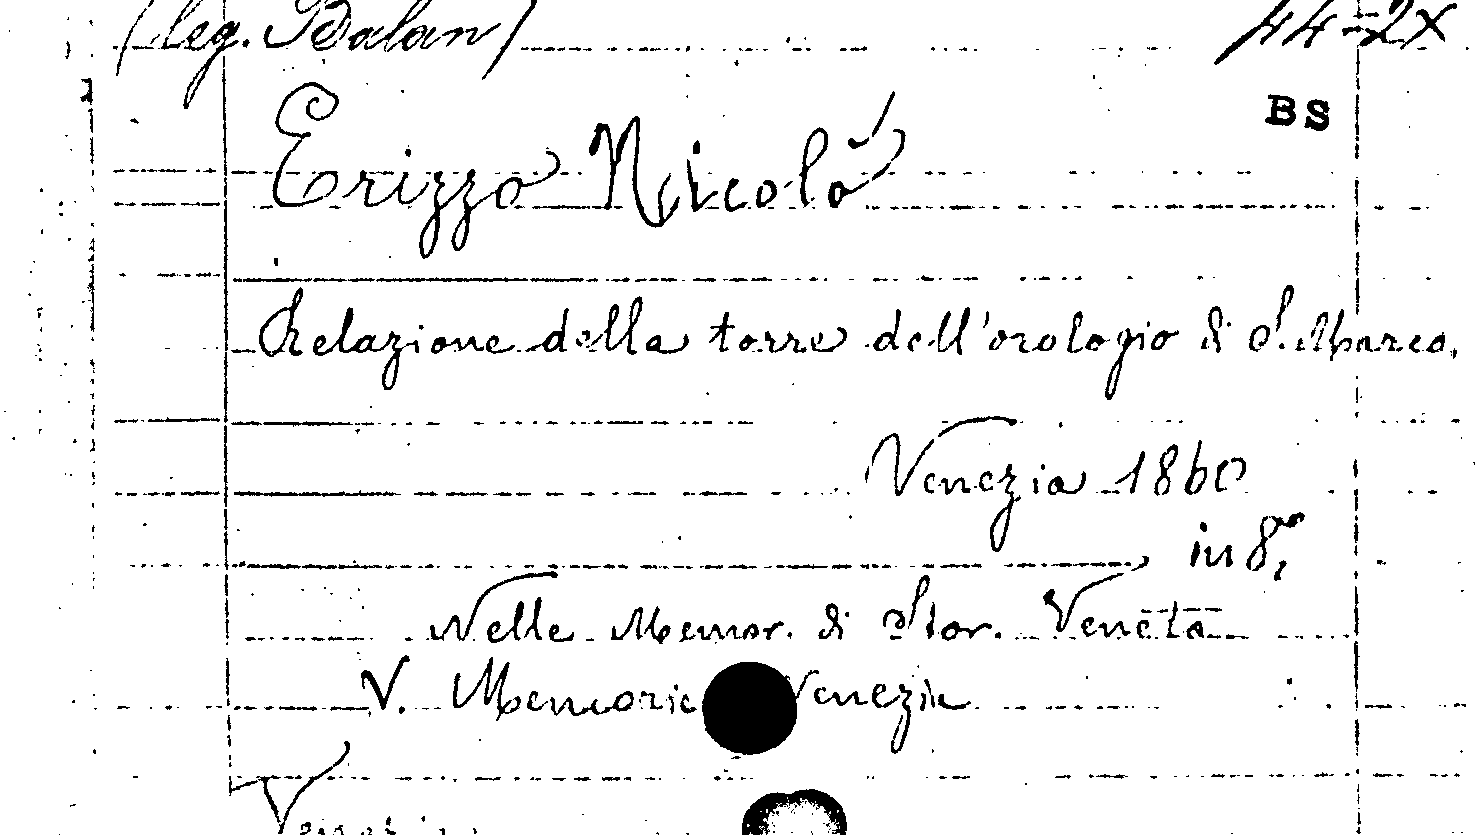 (leg. Balan) 44-2X
BS
Erizzo Nicolò
Relazione della torre dell'orologio di S. Marco.
Venezia 1860
in 8º
Nelle Memor. di Stor. Veneta
V. Memorie Venezia